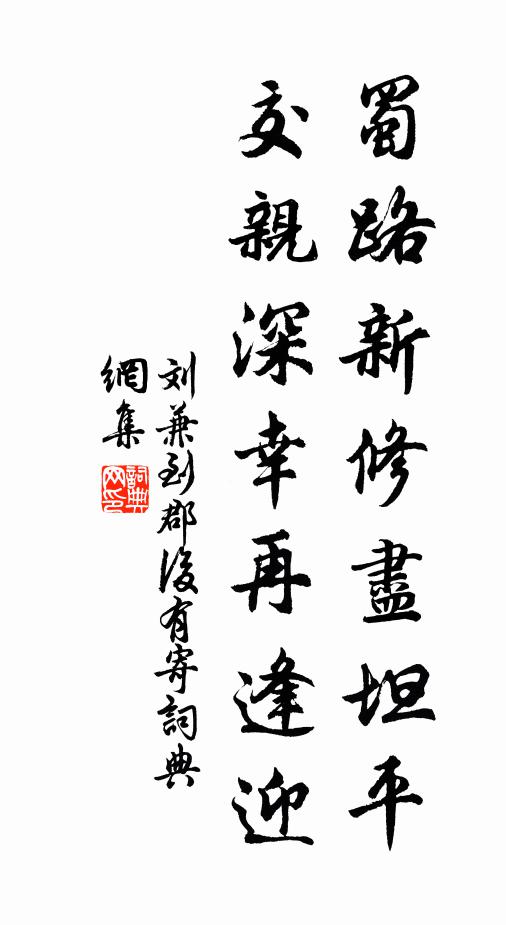 蜀路新修盡坦平
交親深幸再逢迎
刘兼到郡後有寄詞典
網集
詞典網印